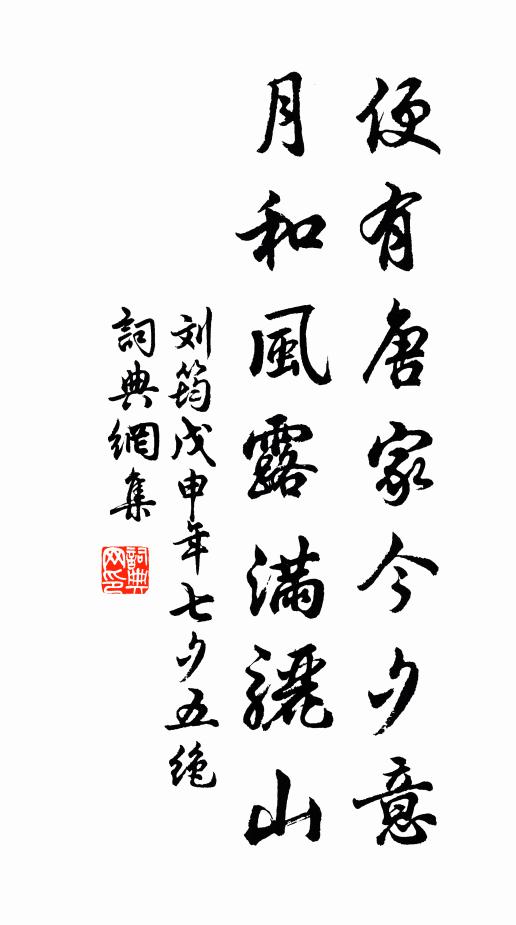 便有唐家今夕意
月和風露滿驪山
刘筠戊申年七夕五绝
詞典網集
詞典網印